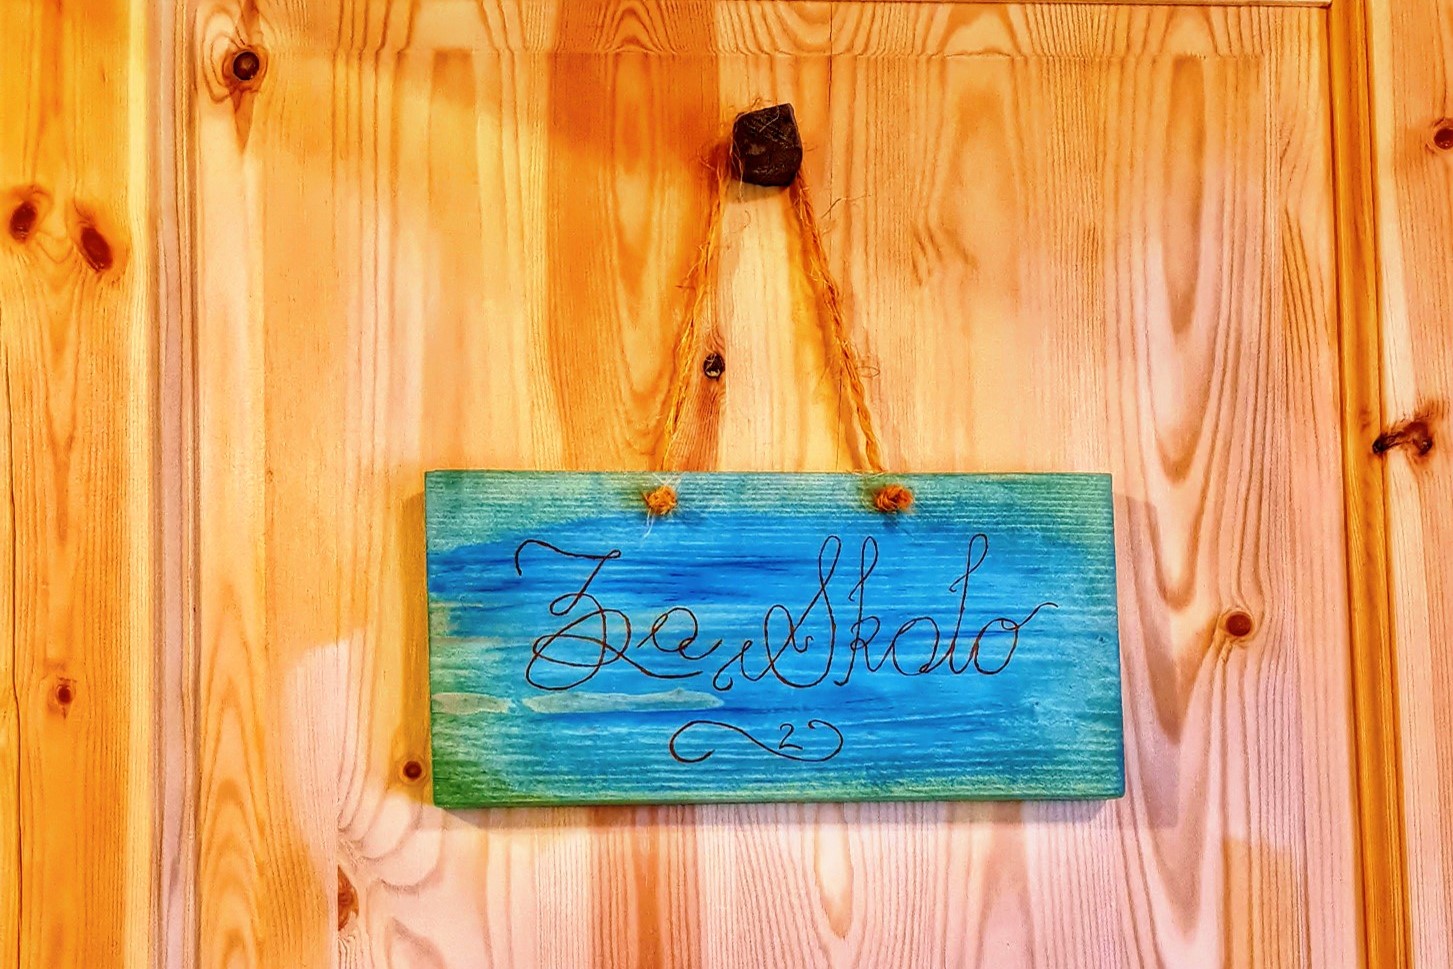 Za Skalo
2